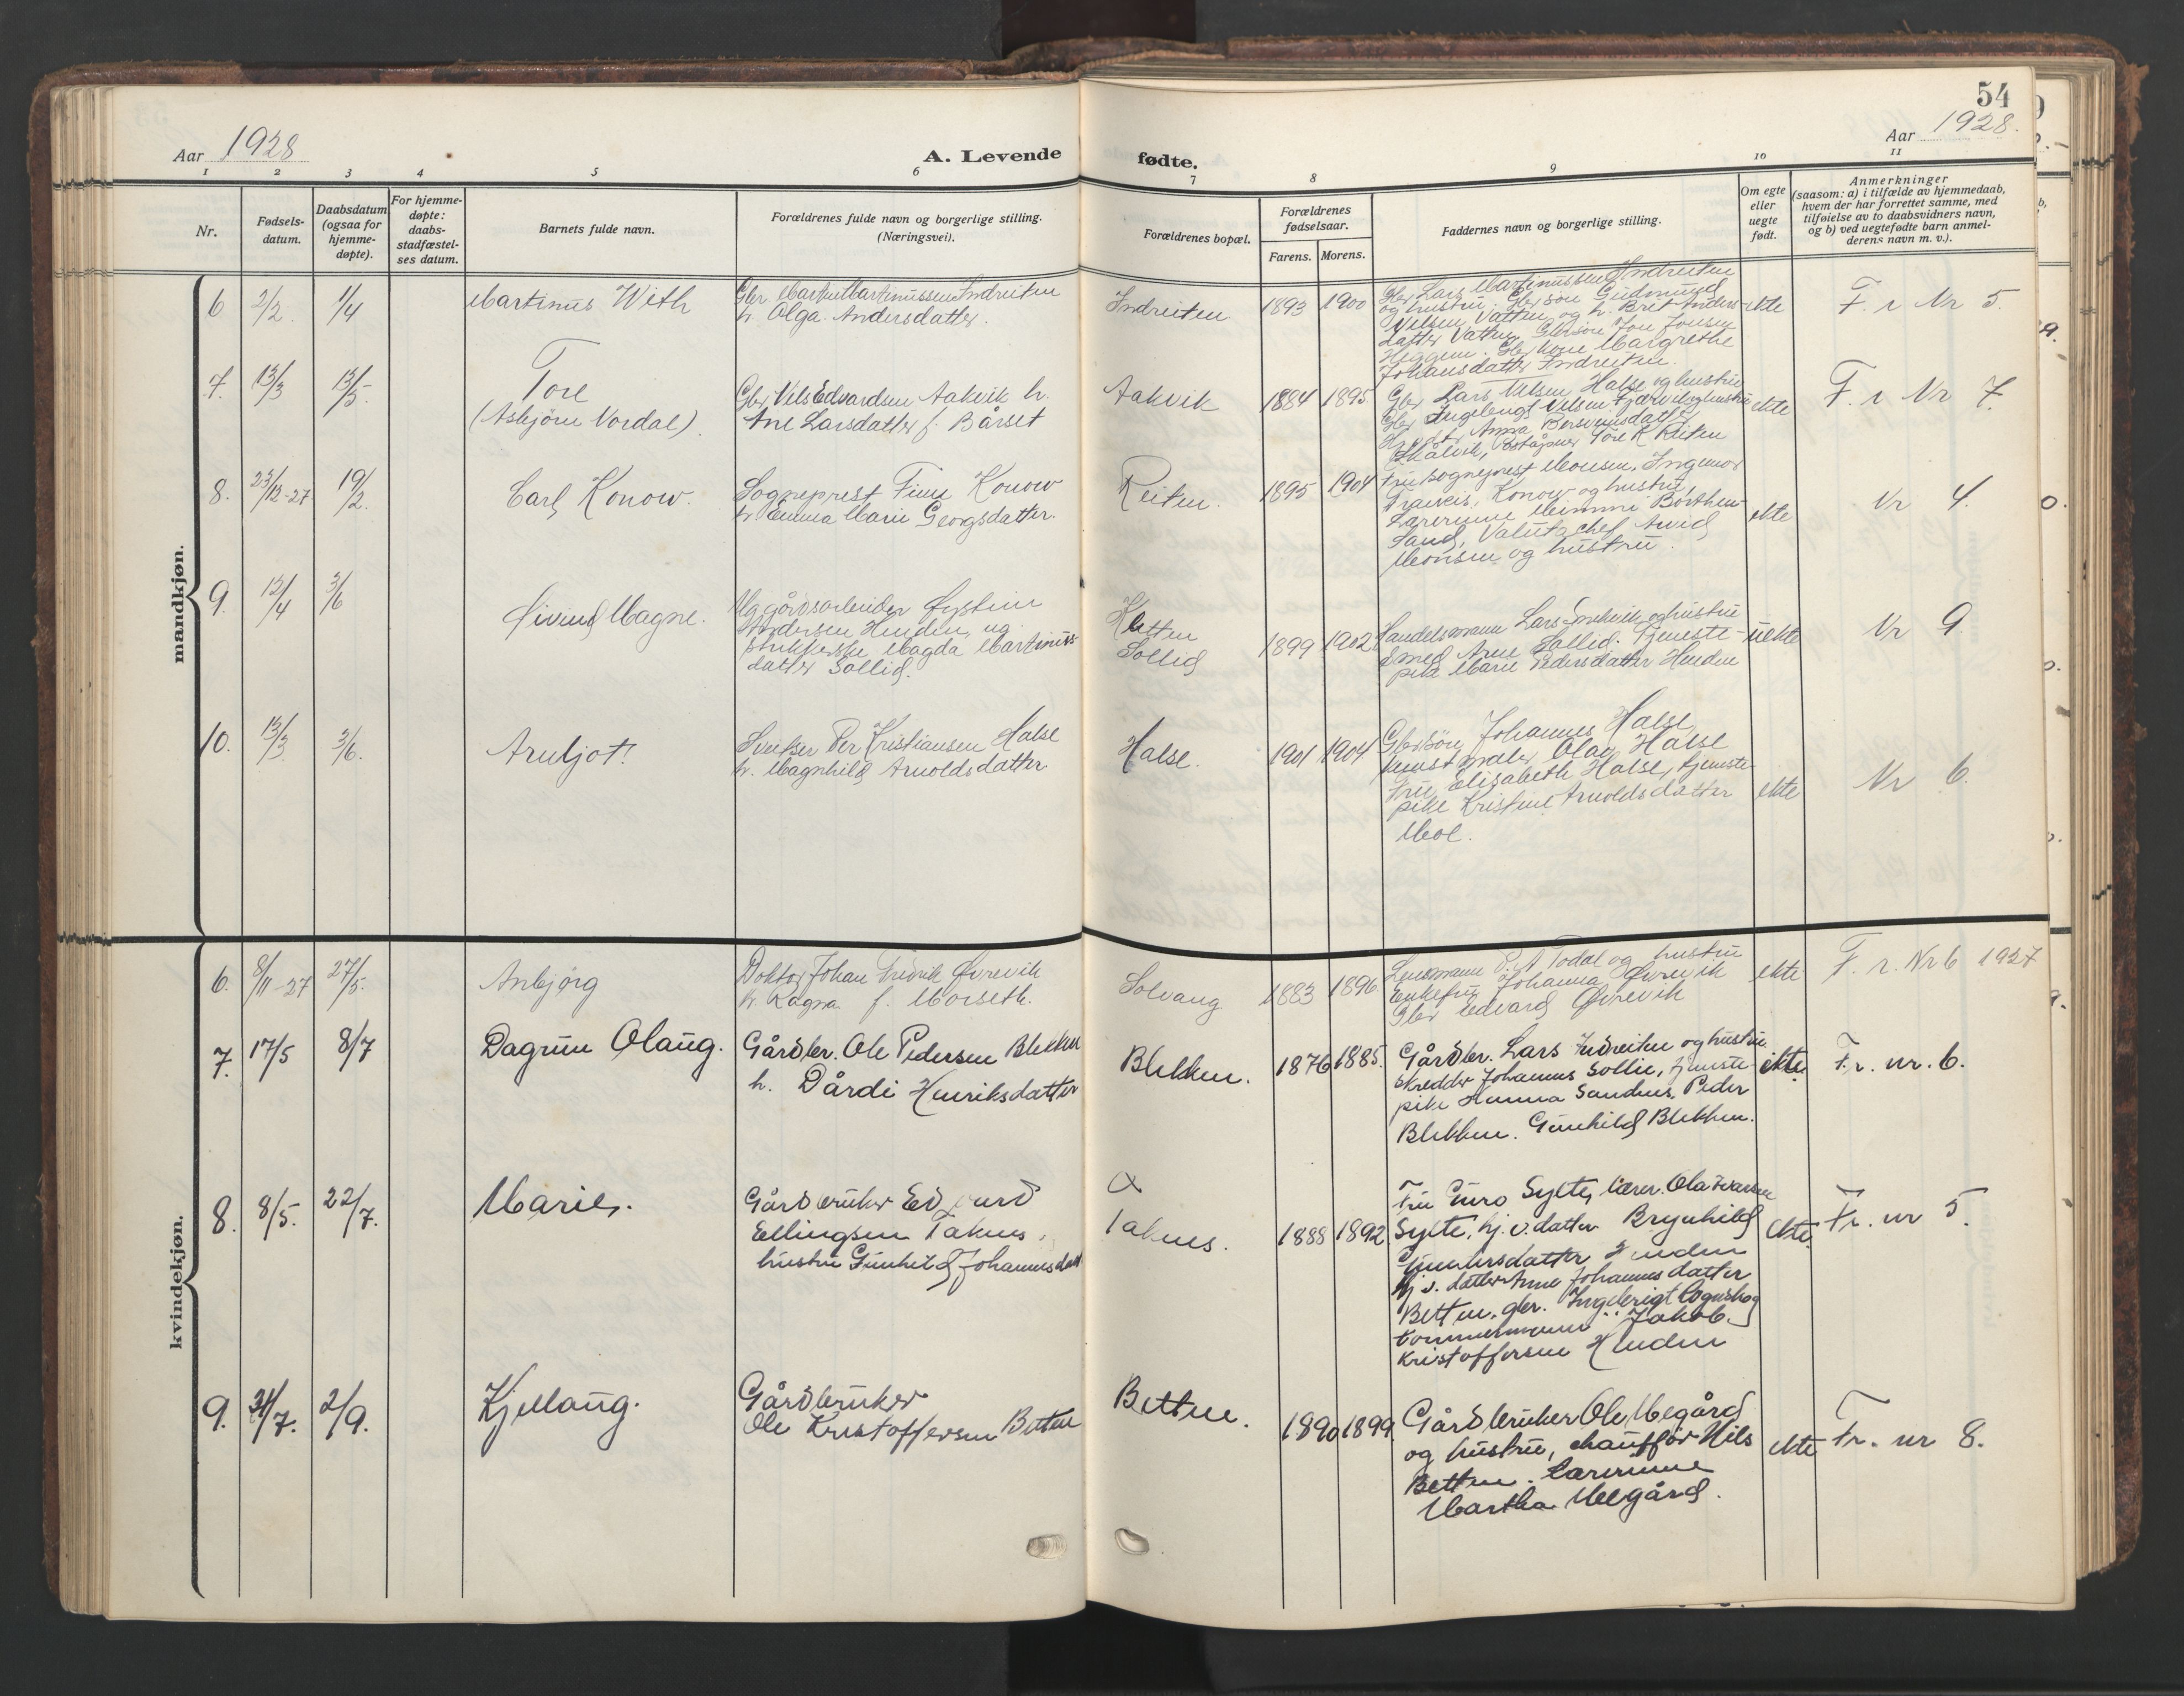 54
Aar 1928
A. Levende
fødte.
Aar 1928.
1 2 3 4 5 6 7 8 9 10 11
Nr.
Fødsels-
datum.
Daabsdatum
(ogsaa for
hjemme-
døpte).
For hjemme-
døpte:
daabs-
stadfæstel-
ses datum.
Barnets fulde navn.
Forældrenes fulde navn og borgerlige stilling.
(Næringsvei).
Forældrenes bopæl.
Forældrenes
fødselsaar.
Farens. Morens.
Faddernes navn og borgerlige stilling.
Om egte
eller
uegte
født.
Anmerkninger
(saasom: a) i tilfælde av hjemmedaab,
hvem der har forrettet samme, med
tilføielse av to daabsvidners navn,
og b) ved uegtefødte barn anmel-
derens navn m. v.).
mandkjøn.
6 2/2. 1/4
Martinus With
Gbr Martin Martinussen Indreiten
h. Olga Andersdatter.
Indreiten
1893 1900
Gbr Lars Martinussen Indreiten
og hustru. Gbrsøn Gudmund
Nilsen Vatten og h. Brit Anders-
datter Vatten. Gbrsøn Jon Jonsen
Heggem. Gbr kone Margrethe
Johansdatter Indreiten.
ekte
F. r Nr 5.
7. 13/3 13/5-
Tore
(Asbjørn Nordal).
Gbr Nils Edvardsen Aakvik h.
Ane Larsdatter f. Bårset
Aakvik
1884 1895
Gbr Lars Nilsen Halse og hustru
Gbr Ingebrigt Nilsen Fjærvik og hustru
Anna
Skålvik, Poståpner Tore K Reiten
ekte
F. r Nr 7.
8. 23/12-27 19/2.
Carl Konow.
Sogneprest Finn Konow
h. Emma Marie Georgsdatter.
Reiten.
1895 1904
Fru sogneprest Monsen. Ingeniør
Francis Konow og hustru,
Lærerinne Mimmi Borthen-
Sand, Valutachef Arvid
Monsen og hustru.
ekte
Nr 4.
9. 12/4 3/6
Øivind Magne.
Ug gårdsarbeider Øystein
Andersen Henden, ug
strikkerske Magda Martinus-
datter Sollid.
Sollid
1899 1902
Handelsmann Lars Smekvik og hustru
Smed Arne Sollid. Tjeneste-
pike Marie Pedersdatter Henden
uekte
Nr 9.
10. 13/3. 3/6.
Arnljot.
Sveitser Per Kristiansen Halse
h. Magnhild Arnoldsdatter.
Halse.
1901 1904
Gbrsøn Johannes Halse
Kunstmaler Olav Halse
Fru Elisabeth Halse, tjeneste-
pike Kristine Arnoldsdatter
Moe.
ekte
Nr 6.
kvindekjøn.
6. 8/11-27 27/5.
Anbjørg
Doktor Johan Fredrik Øvrevik
h. Ragna f. Morseth.
Solvang
1883 1896
Lensmann P. A. Todal og hustru
Enkefru Johanna Øvrevik
Gbr Edvard Øvrevik
ekte
F. r. Nr 6 1927
7. 17/5 8/7
Dagrun Olaug.
Gårdbr. Ole Pedersen Blekken
h. Dårdi Henriksdatter
Blekken.
1876 1885.
Gårdbr. Lars Indreiten og hustru
skredder Johannes Sollie, tjeneste-
pike Hanna Sandnes, Peder
Blekken. Gunhild Blekken.
ekte.
Fr. nr. 6.
8. 8/5. 22/7.
Marie.
Gårdbruker Edvard
Ellingsen Taknes,
hustru Gunhild Johannesdatt
Taknes.
1888 1892
Fru Guro Sylte, lærer Ola Ivarsen
Sylte, hj. v. datter Brynhild
Gunnersdatter Henden
hj. v. datter Anne Johannesdatter
Betten, gbr. Ingebrigt Rognskog
tømmermann Jakob
Kristoffersen Henden
ekte.
Fr. nr 5.
9. 24/7. 2/9.
Kjellaug.
Gårdbruker
Ole Kristoffersen Betten
Betten.
1890 1899.
Gårdbruker Ole Megård
og hustru, chauffør Nils
Betten. Lærerinne
Martha Megård.
ekte
Fr. nr 8.